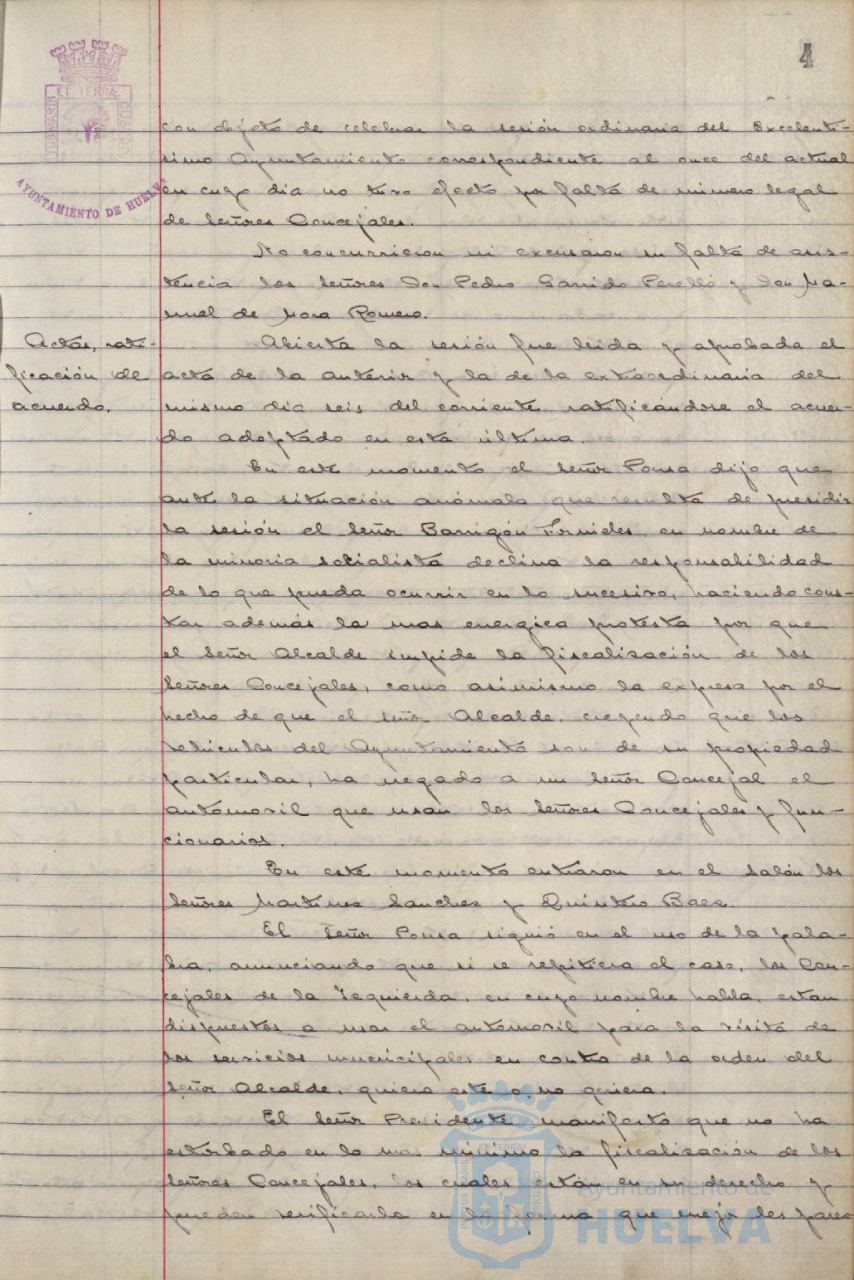 4
PORTUS MARIS ET TERRÆ CUSTODIA
AYUNTAMIENTO DE HUELVA
con objeto de celebrar la sesión ordinaria del Excelentí-
simo Ayuntamiento correspondiente al once del actual
en cuyo dia no tuvo efecto por falta de número legal
de Señores Concejales.
No concurrieron ni excusaron su falta de asis-
tencia los Señores Don Pedro Garrido Perelló y Don Ma-
nuel de Mora Romero.
Actas, rati-
ficación de
acuerdo.
Abierta la sesión fue leida y aprobada el
acta de la anterior y la de la extraordinaria del
mismo dia seis del corriente ratificándose el acuer-
do adoptado en esta última.
En este momento el Señor Ponsa dijo que
ante la situación anómala que resulta de presidir
la sesión el Señor Barrigón Fornieles, en nombre de
la minoria socialista declina la responsabilidad
de lo que pueda ocurrir en lo sucesivo, haciendo cons-
tar además la mas energica protesta por que
el Señor Alcalde impide la fiscalización de los
Señores Concejales, como asimismo la expresa por el
hecho de que el señor Alcalde, creyendo que los
vehiculos del Ayuntamiento son de su propiedad
particular, ha negado a un Señor Concejal el
automovil que usan los Señores Concejales y fun-
cionarios.
En este momento entraron en el Salón los
Señores Martinez Sanchez y Quintero Baez.
El Señor Ponsa siguió en el uso de la pala-
bra, anunciando que si se repitiera el caso, los Con-
cejales de la Izquierda, en cuyo nombre habla, estan
dispuestos a usar el automovil para la visita de
los servicios municipales en contra de la orden del
Señor Alcalde, quiera este o no quiera.
El Señor Presidente manifestó que no ha
estorbado en lo mas minimo la fiscalización de los
Señores Concejales, los cuales están en su derecho y
pueden verificarla en la forma que mejor les parez
Ayuntamiento de
HUELVA